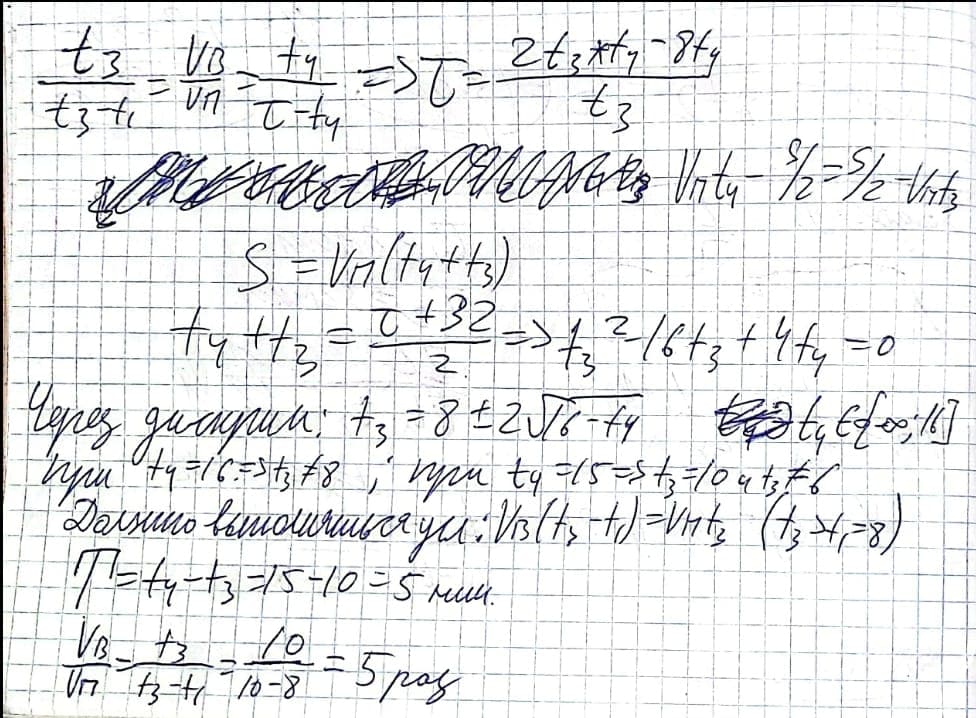 t₃/(t₃-t₁) = Vв/Vп = t₄/(τ-t₄) => τ = (2t₃*t₄-8t₄)/t₃
Vпt₄ - S/2 = S/2 - Vпt₃
S = Vп(t₄+t₃)
t₄+t₃ = (τ+32)/2 => t₃²-16t₃+4t₄=0
Через дискрим: t₃ = 8 ± 2√(16-t₄) t₄ ∈ {-∞;16]
при t₄=16 => t₃≠8 ; при t₄=15 => t₃=10 и t₃≠6
Должно выполняться усл: Vв(t₃-t₁)=Vпt₃ (t₃>t₁=8)
T = t₄-t₃ = 15-10 = 5 мин.
Vв/Vп = t₃/(t₃-t₁) = 10/(10-8) = 5 раз